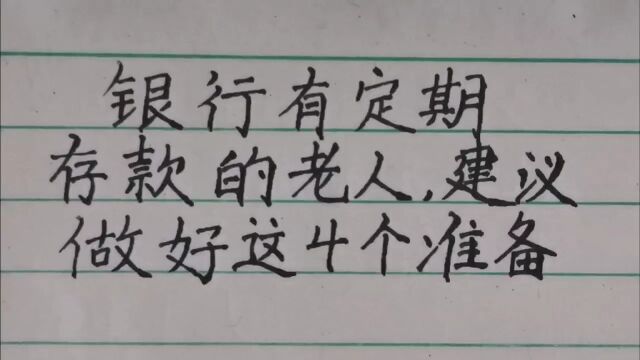 银行有定期
存款的老人,建议
做好这4个准备